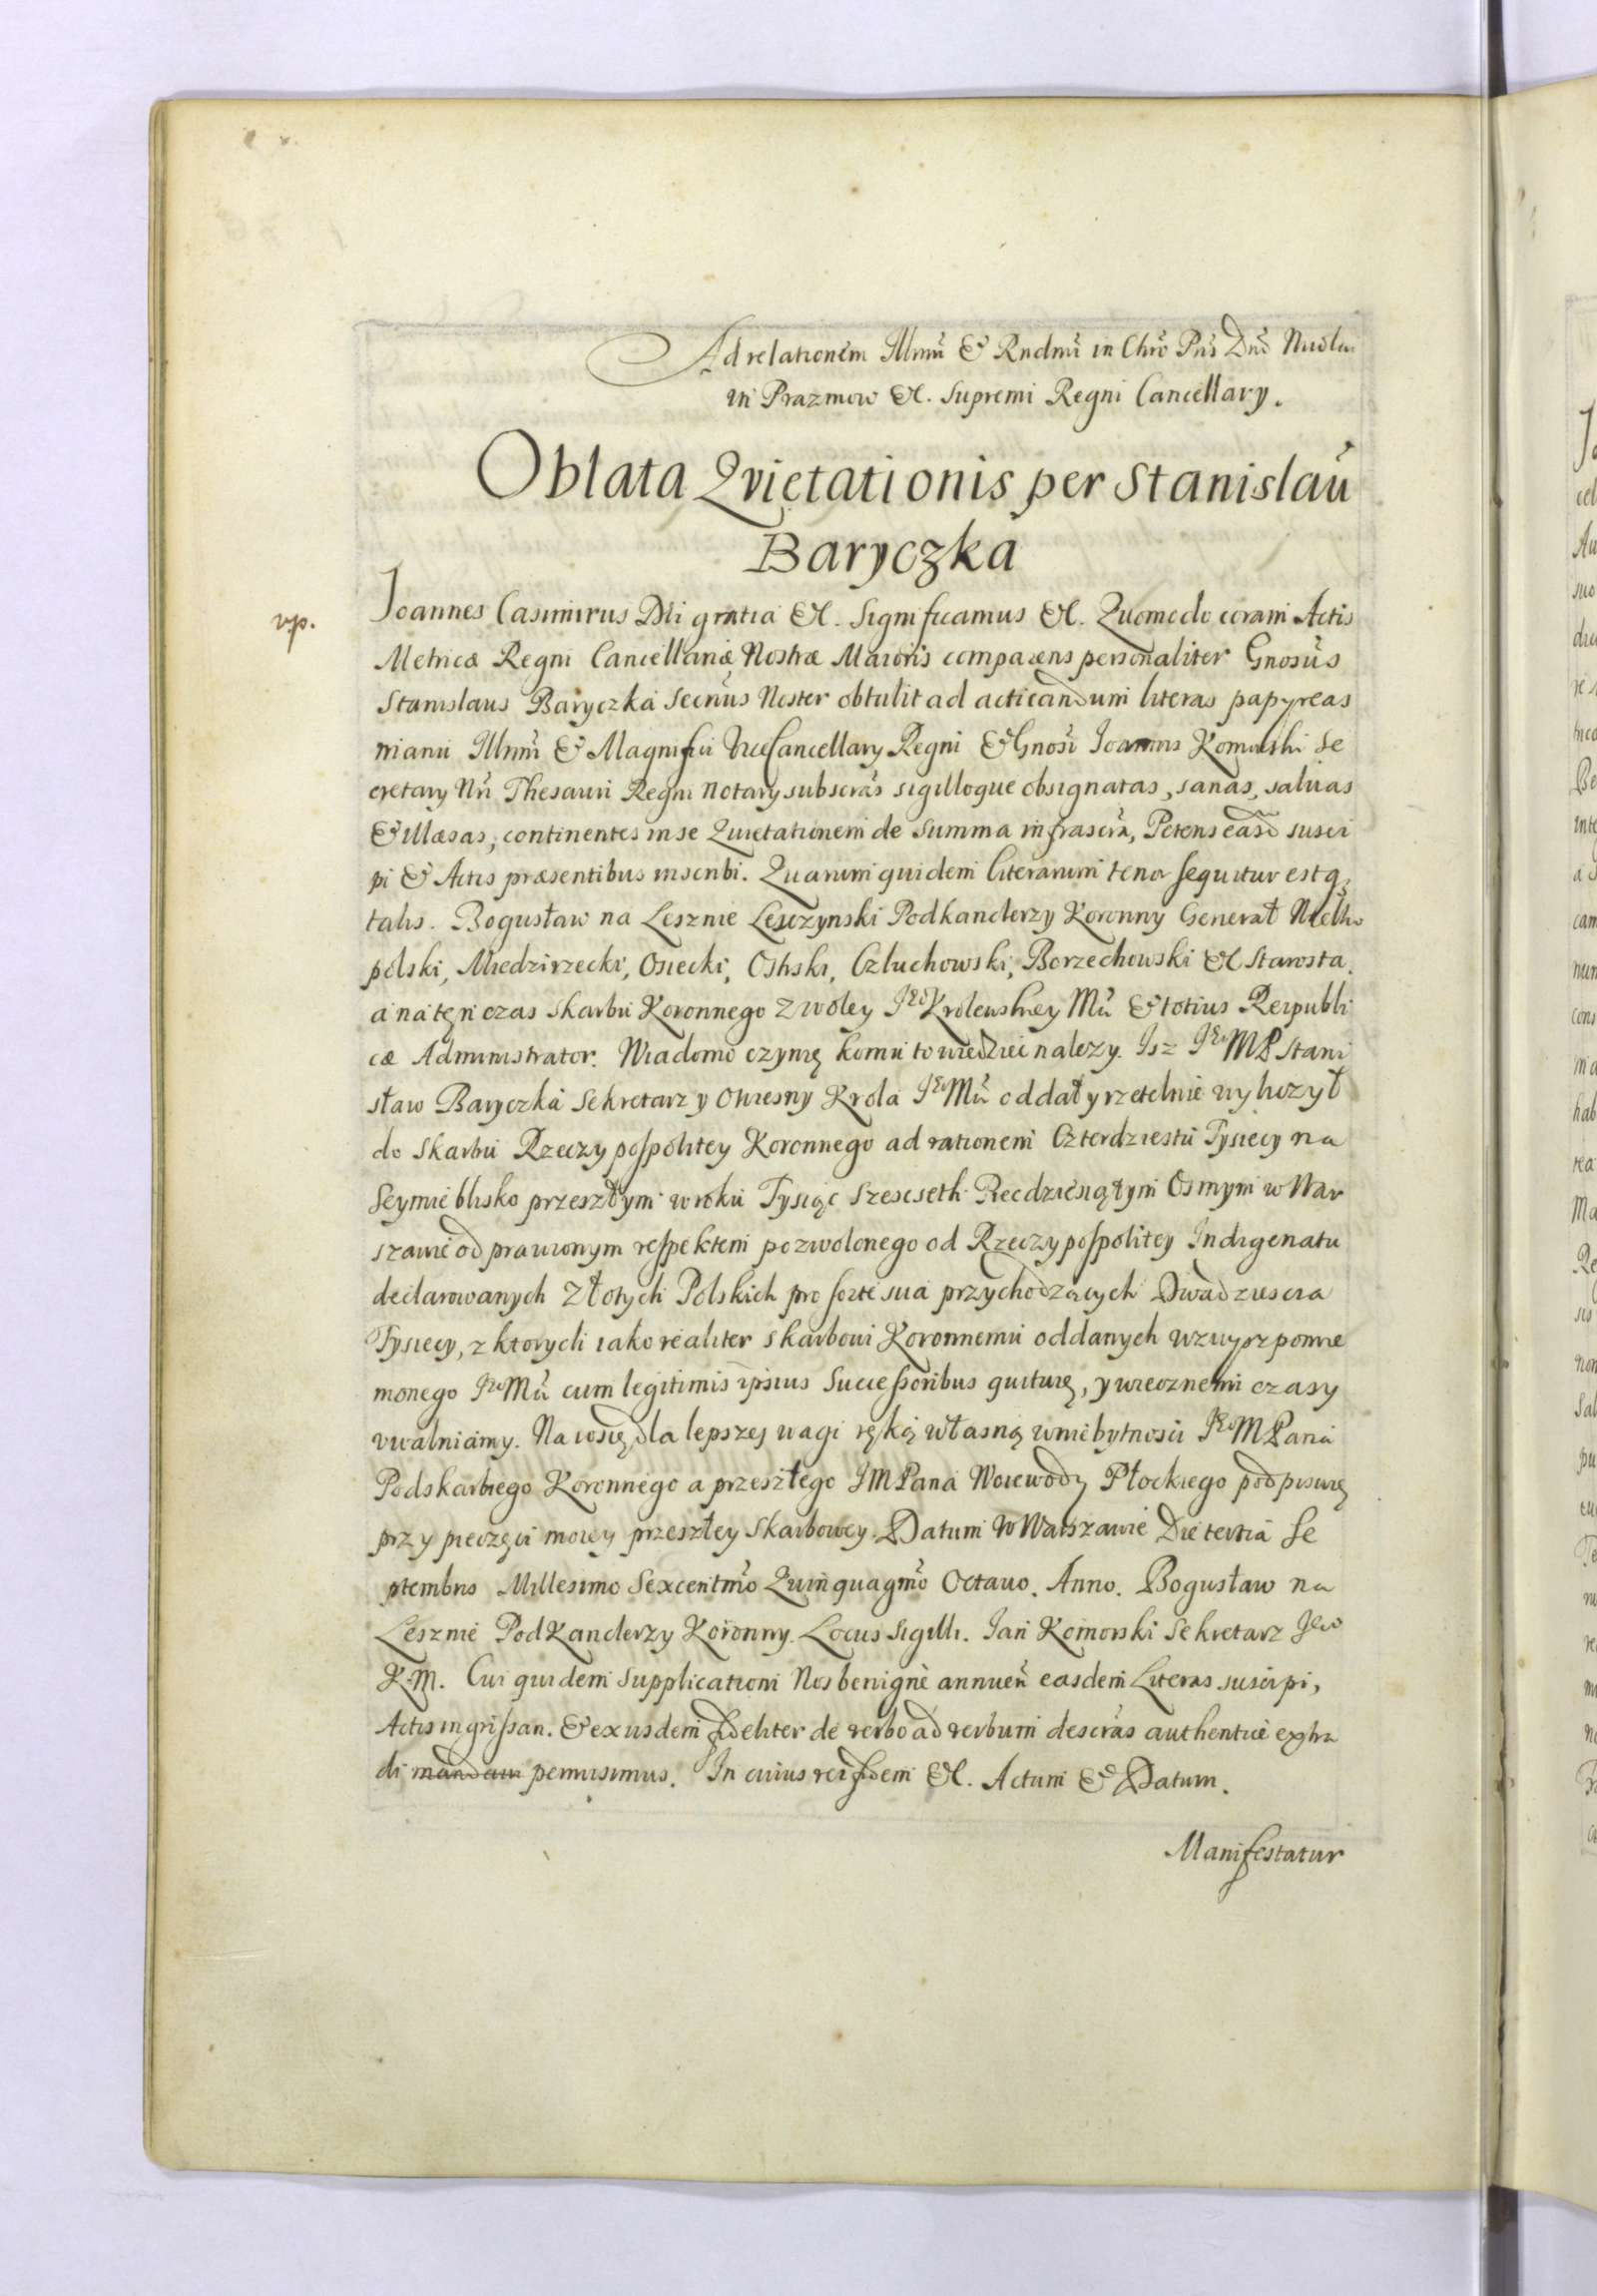 Ad relationem Illmi & Rndmi in Chro Pris Dni Nicolai
in Prazmow &c. Supremi Regni Cancellary.
Oblata Qvietationis per Stanislaũ
Baryczka
vp.
Joannes Casimirus Dei gratia &c. Significamus &c. Quomodo coram Actis
Metricæ Regni Cancellariæ Nostræ Maioris comparens personaliter Gnosus
Stanislaus Baryczka Secrius Noster obtulit ad acticandum literas papyreas
manu Illmi & Magnifici ViceCancellary Regni & Gnosi Joannis Komorski Se
cretary Nri Thesauri Regni Notary subscras sigilloque obsignatas, sanas, saluas
& illæsas, continentes in se Quietationem de summa infrascra, Petens easd susci
pi & Actis præsentibus inscribi. Quarum quidem literarum tenor sequitur estq
talis. Bogusław na Lesznie Lesczynski Podkanclerzy Koronny Generał Wielko
polski, Miedzirzecki, Osiecki, Ostrski, Czluchowski, Borzechowski &c Starosta.
a na tęn czas skarbu Koronnego z woley Jeo Krolewskiey Mci & totius Reipubli
cæ Administrator. Wiadomo czynię komu to wiedziec nalezy. Isz JeoMP Stani
sław Baryczka Sekretarz y Okresny Krola JeoMci oddał y rzetelnie wyliczył
do skarbu Rzeczypospolitey Koronnego ad rationem Czterdziestu Tysiecy na
Seymie blisko przeszłym w roku Tysiąc Szescseth Piecdziesiątym Osmym w War
szawie odprawionym respektem pozwolonego od Rzeczypospolitey Indigenatu
declarowanych Złotych Polskich pro sorte sua przychodzących Dwadziescia
Tysiecy, z ktorych iako realiter skarbowi Koronnemu oddanych wzwyszpomie
nionego JeoMci cum legitimis ipsius Successoribus quituię, y wiecznemi czasy
vwalniamy. Na co się dla lepszej wagi ręką własną w niebytnosci JeoMPana
Podskarbiego Koronnego a przeszłego JMPana Woiewody Płockiego podpisuię
przy pieczęci moiey przeszłey skarbowey. Datum w Warszawie Die tertia Se
ptembris Millesimo Sexcentmo Quinquagmo Octauo. Anno. Bogusław na
Lesznie PodKanclerzy Koronny. Locus Sigilli. Jan Komorski Sekretarz Jeo
K.M. Cui quidem supplicationi Nos benignè annuen easdem Literas suscipi,
Actis ingrossari. & ex iisdem fideliter de verbo ad verbum descras authenticè extra
di mandaui permisimus. In cuius rei fidem &c. Actum & Datum.
Manifestatur